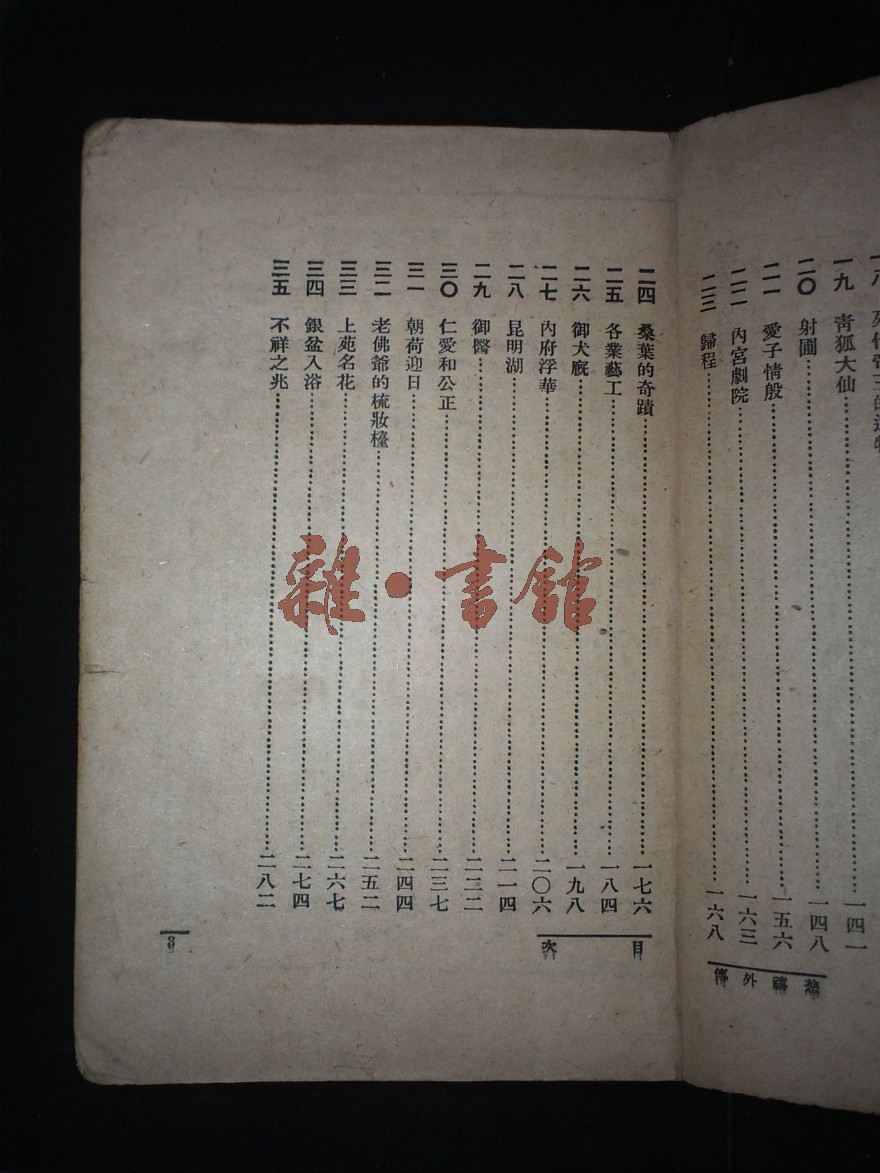 一九 青狐大仙 一四一
二〇 射圃 一四八
二一 愛子情殷 一五六
二二 內宮劇院 一六三
二三 歸程 一六八
禧外傳
二四 桑葉的奇蹟 一七六
二五 各業藝工 一八四
二六 御犬廐 一九八
二七 內府浮華 二〇六
二八 昆明湖 二一四
二九 御醫 二三二
三〇 仁愛和公正 二三七
三一 朝荷迎日 二四四
三二 老佛爺的梳妝檯 二五二
三三 上苑名花 二六七
三四 銀盆入浴 二七四
三五 不祥之兆 二八二
目次
3
雜·書館